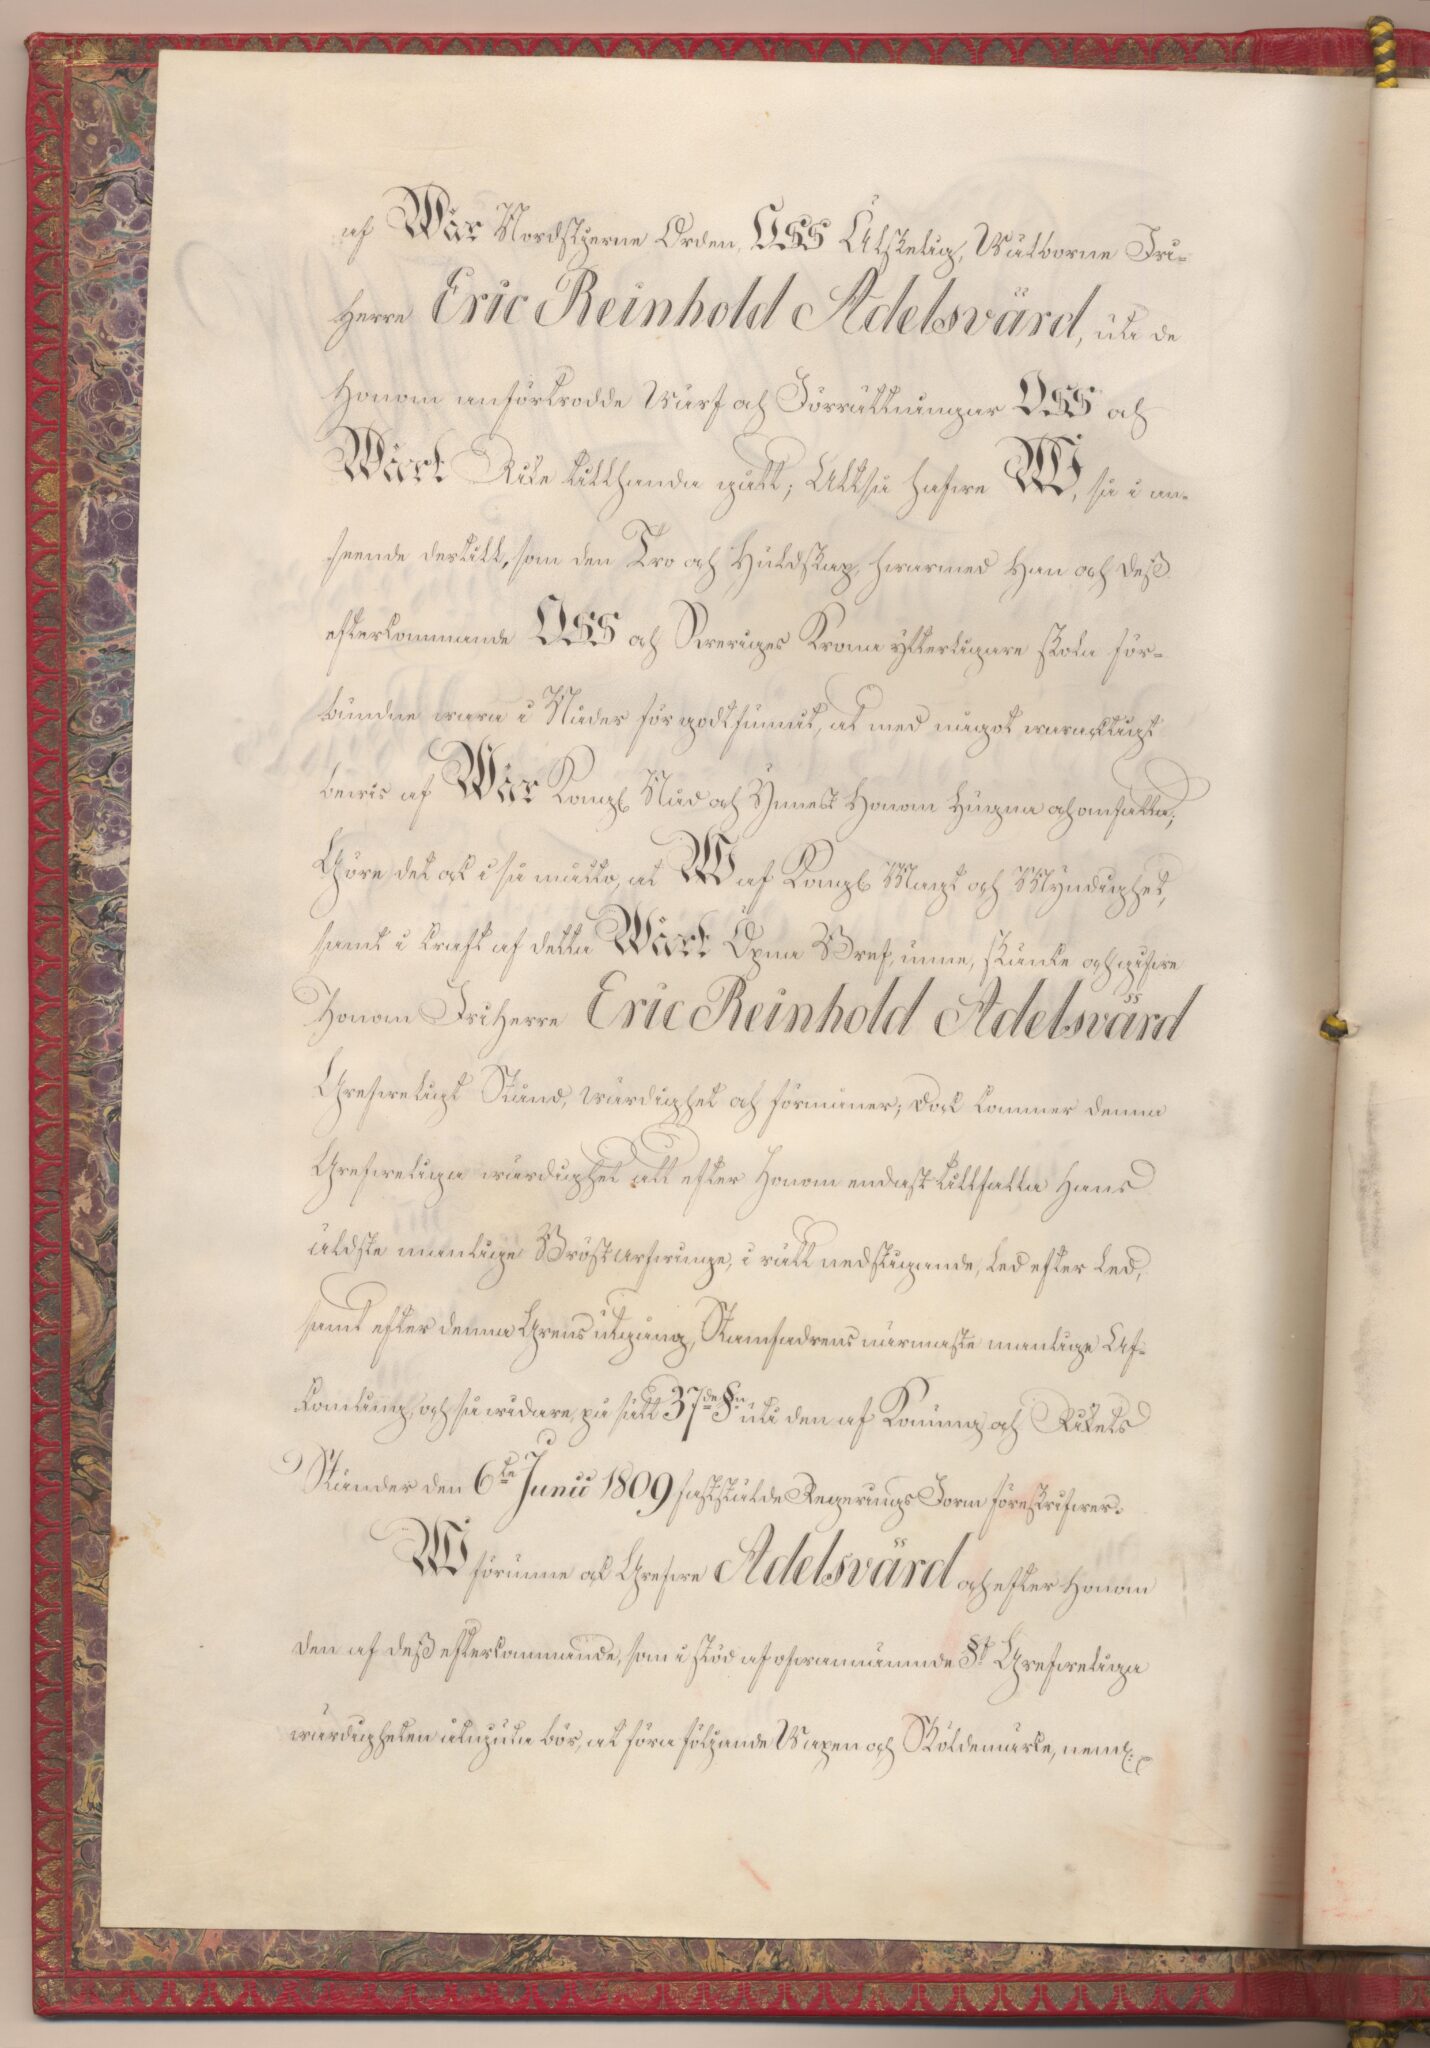 af Wår Nordstjerne Orden, OSS Älskelig, Wälborne Fri-
Herre Eric Reinhold Adelsvärd, uti de
Honom anförtrodde Wärf och Förrättningar OSS och
Wårt Rike tillhanda gått; Altså hafve WI, så i an-
seende dertill, som den Tro och Huldskap, hvarmed Han och deß
efterkommande OSS och Sveriges Krona ytterligare skola för-
bundne vara i Nåder för godt funnit, at med något varacktigt
bevis af Wår Kongl. Nåd och Ynnest Honom Hugna och omfatta;
Göre det ock i så måtto, at WI af Kongl. Magt och Myndighet,
samt i kraft af detta Wårt Öpna Bref, unne, skänke och gifve
Honom FriHerre Eric Reinhold Adelsvärd
Grefveligt Stånd, värdighet och förmåner; dock kommer denna
Grefveliga värdighet att efter Honom endast tillfalla Hans
äldste manlige Bröstarfvinge, i rätt nedstigande, Led efter Led,
samt efter denna Grens utgång, Stamfadrens närmaste manlige Af-
komling, och så vidare, på sätt 37de §n uti den af Konung och Rikets
Ständer den 6te Junii 1809 fastställde Regerings Form föreskrifver.
WI förunne ock Grefve Adelsvärd och efter Honom
den af deß efterkommande, som i stöd af ofvannämnde §f Grefveliga
värdigheten åtnjuta bör, at föra följande Wapen och Sköldemärke, neml: